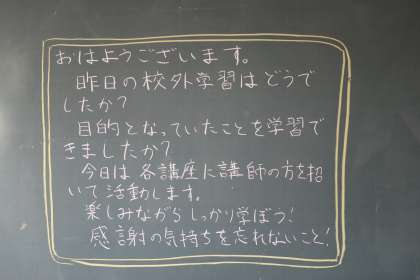 おはようございます。
昨日の校外学習はどうで
したか?
目的となっていたことを学習で
きましたか?
今日は各講座に講師の方を招
いて活動します。
楽しみながらしっかり学ぼう!
感謝の気持ちを忘れないこと!